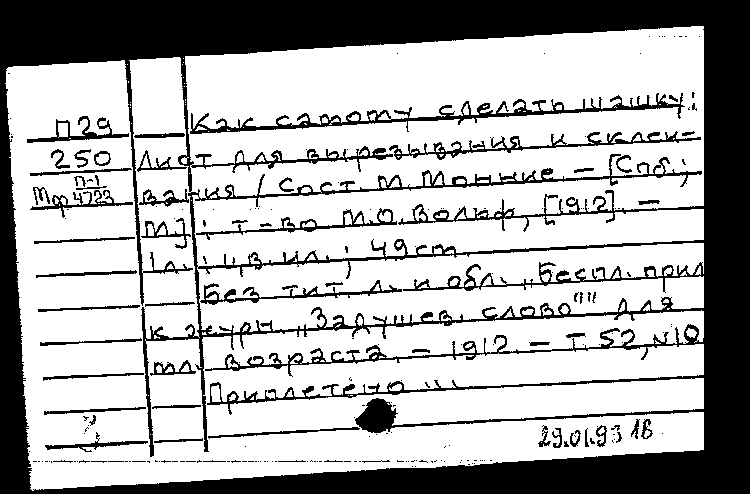 П29 Как самому сделать шашку:
250 Лист для вырезывания и склеи-
Мф П-1/4723 вания / Сост. М. Монние. – [Спб.;
М.] : т-во М.О. Вольф, [1912]. –
1 л. : цв. ил. ; 49 cm.
Без тит. л. и обл. „Беспл. прил.
к журн. „Задушев. слово"" для
мл. возраста. – 1912. – Т. 52, №10.
Приплетено ...
29.01.93